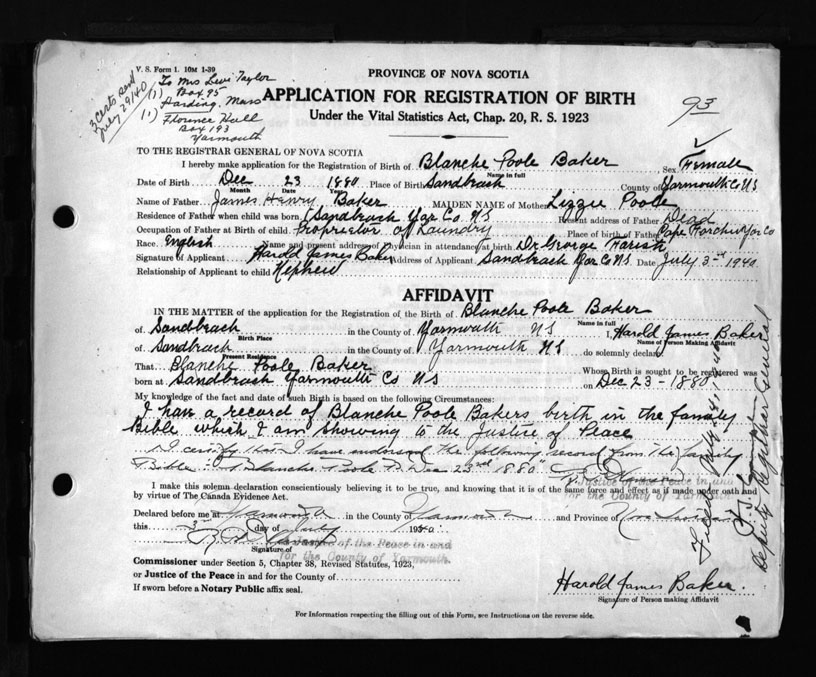 V. S. Form 1. 10M 1-39
3 certs. sent
July 29/40
(1) To Mrs Levi Taylor
Box 95
Harding, Mass
(1) Florence Hall
Box 193
Yarmouth
93
PROVINCE OF NOVA SCOTIA
APPLICATION FOR REGISTRATION OF BIRTH
Under the Vital Statistics Act, Chap. 20, R. S. 1923
TO THE REGISTRAR GENERAL OF NOVA SCOTIA
I hereby make application for the Registration of Birth of Blanche Poole Baker Sex Female
Name in full
Date of Birth Dec 23 1880 Place of Birth Sandbeach County of Yarmouth Co NS
Month Date Year
Name of Father James Henry Baker MAIDEN NAME of Mother Lizzie Poole
Residence of Father when child was born Sandbeach Yar Co NS Present address of Father Dead
Occupation of Father at Birth of child Proprietor of Laundry Place of birth of Father Cape Forchu Yar Co
Race. English Name and present address of Physician in attendance at birth Dr George Farish
Signature of Applicant Harold James Baker Address of Applicant Sandbeach Yar Co NS Date July 3rd 1940
Relationship of Applicant to child Nephew
AFFIDAVIT
IN THE MATTER of the application for the Registration of the Birth of Blanche Poole Baker
Name in full
of Sandbeach in the County of Yarmouth NS I, Harold James Baker
Birth Place Name of Person Making Affidavit
of Sandbeach in the County of Yarmouth NS do solemnly declare
Present Residence
That Blanche Poole Baker Whose Birth is sought to be registered was
born at Sandbeach Yarmouth Co NS on Dec 23-1880
My knowledge of the fact and date of such Birth is based on the following Circumstances:
I have a record of Blanche Poole Bakers birth in the family
Bible which I am showing to the Justice of Peace
I certify that I have endorsed the following record from the family
Bible: "Blanche Poole B. Dec 23rd 1880"
Justice of the Peace in and
for the County of Yarmouth
I make this solemn declaration conscientiously believing it to be true, and knowing that it is of the same force and effect as if made under oath and
by virtue of The Canada Evidence Act.
Declared before me at Yarmouth in the County of Yarmouth and Province of Nova Scotia
this 3rd day of July 1940
Signature of
Justice of the Peace in and
for the County of Yarmouth.
Commissioner under Section 5, Chapter 38, Revised Statutes, 1923,
or Justice of the Peace in and for the County of
If sworn before a Notary Public affix seal.
Harold James Baker.
Signature of Person making Affidavit
For Information respecting the filling out of this Form, see Instructions on the reverse side.
Filed July
Deputy Registrar General